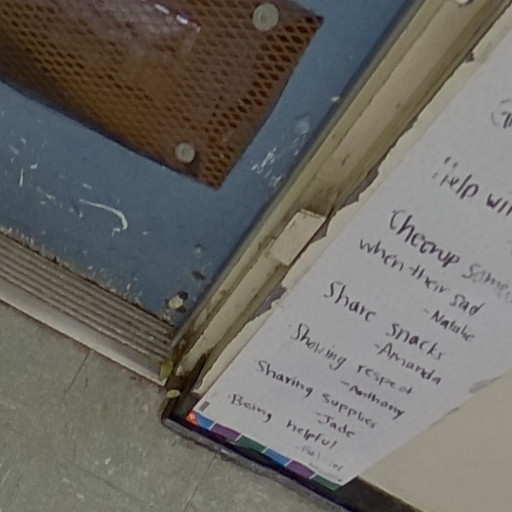 Help
Cheerup
when their sad
-Natalie
Share snacks
-Amanda
Showing respect
-Anthony
Sharing supplies
-Jade
Being helpful